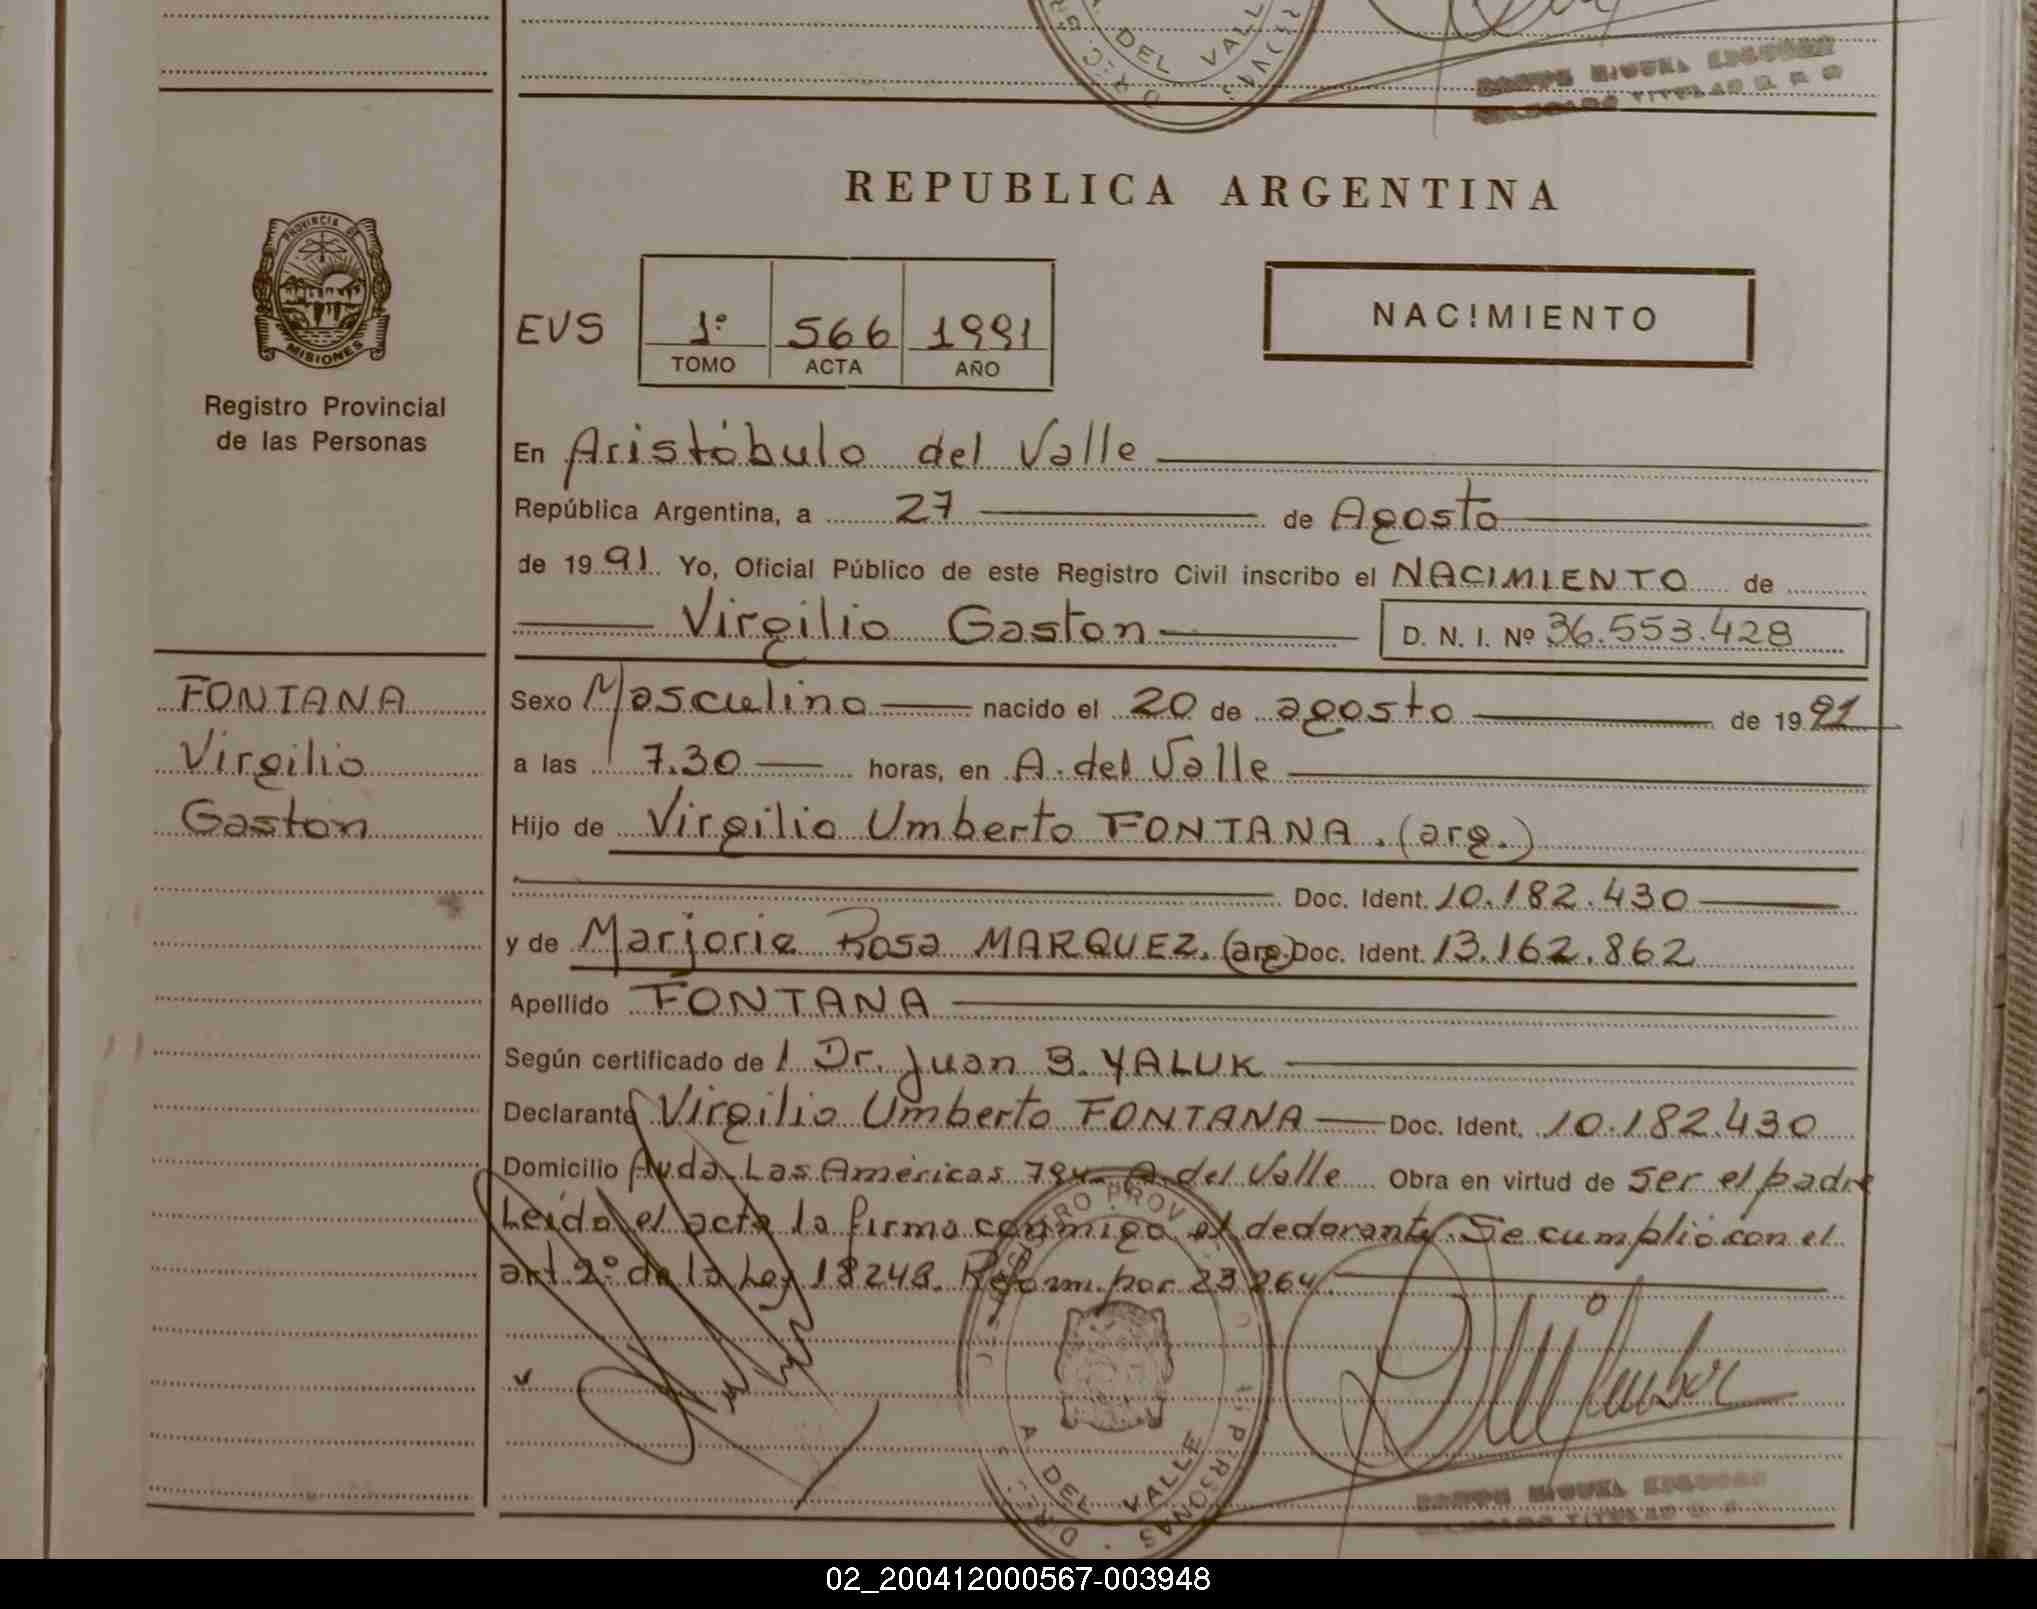 DEL VALLE
REPUBLICA ARGENTINA
PROVINCIA DE
MISIONES
Registro Provincial
de las Personas
EVS 1º 566 1991
TOMO ACTA AÑO
NAC!MIENTO
En Aristóbulo del Valle
República Argentina, a 27 de Agosto
de 1991. Yo, Oficial Público de este Registro Civil inscribo el NACIMIENTO de
Virgilio Gaston D. N. I. Nº 36.553.428
FONTANA
Virgilio
Gaston
Sexo Masculino nacido el 20 de agosto de 1991
a las 7.30 horas, en A. del Valle
Hijo de Virgilio Umberto FONTANA. (arg.)
Doc. Ident. 10.182.430
y de Marjorie Rosa MARQUEZ. (arg.) Doc. Ident. 13.162.862
Apellido FONTANA
Según certificado de l Dr. Juan B. YALUK
Declarante Virgilio Umberto FONTANA Doc. Ident. 10.182.430
Domicilio Avda. Las Américas 794 A. del Valle Obra en virtud de ser el padre
Leída el acta la firma conmigo el declarante. Se cumplió con el
art 2º de la Ley 18248. Reform. por 23264.
A. DEL VALLE
02_200412000567-003948